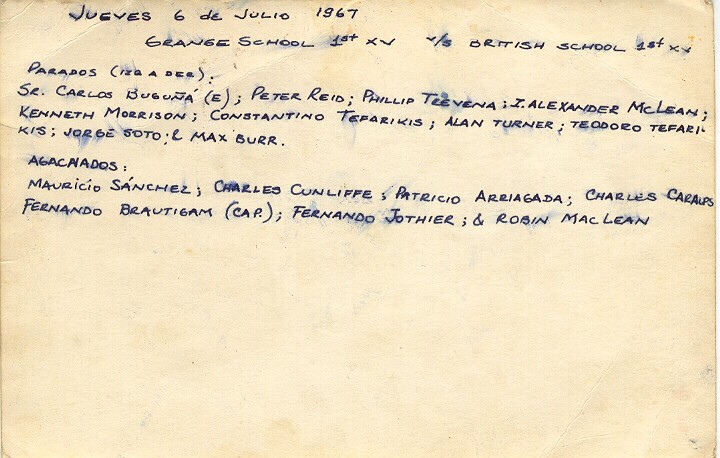 JUEVES 6 de JULIO 1967
GRANGE SCHOOL 1st XV v/s BRITISH SCHOOL 1st XV
PARADOS (IZQ A DER):
SR. CARLOS BUGUÑÁ (E); PETER REID; PHILLIP TREVENA; I. ALEXANDER McLEAN;
KENNETH MORRISON; CONSTANTINO TEFARIKIS; ALAN TURNER; TEODORO TEFARI-
KIS; JORGE SOTO; & MAX BURR.
AGACHADOS:
MAURICIO SÁNCHEZ; CHARLES CUNLIFFE; PATRICIO ARRIAGADA; CHARLES CARALPS
FERNANDO BRAUTIGAM (CAP.); FERNANDO JOTHIER; & ROBIN MACLEAN